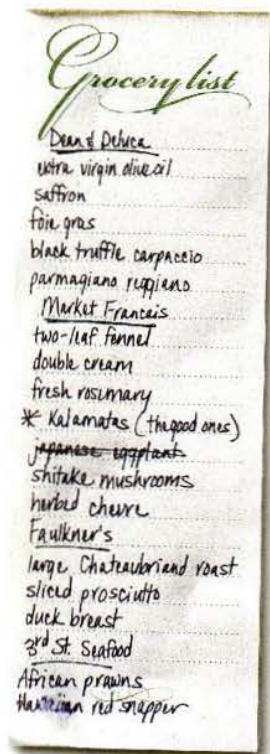 Grocery list
Dean & Deluca
extra virgin olive oil
saffron
foie gras
black truffle carpaccio
parmagiano reggiano
Market Francais
two-leaf fennel
double cream
fresh rosemary
* Kalamatas (the good ones)
japanese eggplant
shitake mushrooms
herbed chevre
Faulkner's
large Chateaubriand roast
sliced prosciutto
duck breast
3rd St. Seafood
African prawns
Hawaiian red snapper